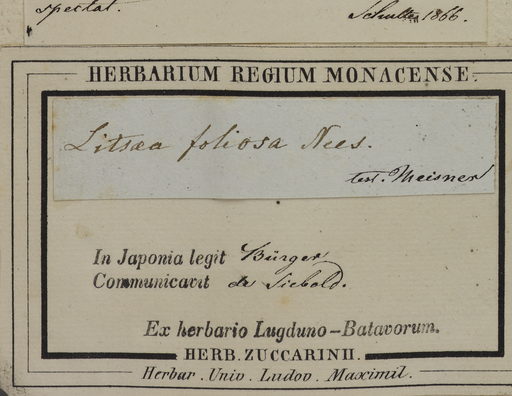 spectat.
Schultes 1866.
HERBARIUM REGIUM MONACENSE.
Litsæa foliosa Nees.
test. Meisner
In Japonia legit Bürger
Communicavit de Siebold.
Ex herbario Lugduno-Batavorum.
HERB. ZUCCARINII.
Herbar. Univ. Ludov. Maximil.